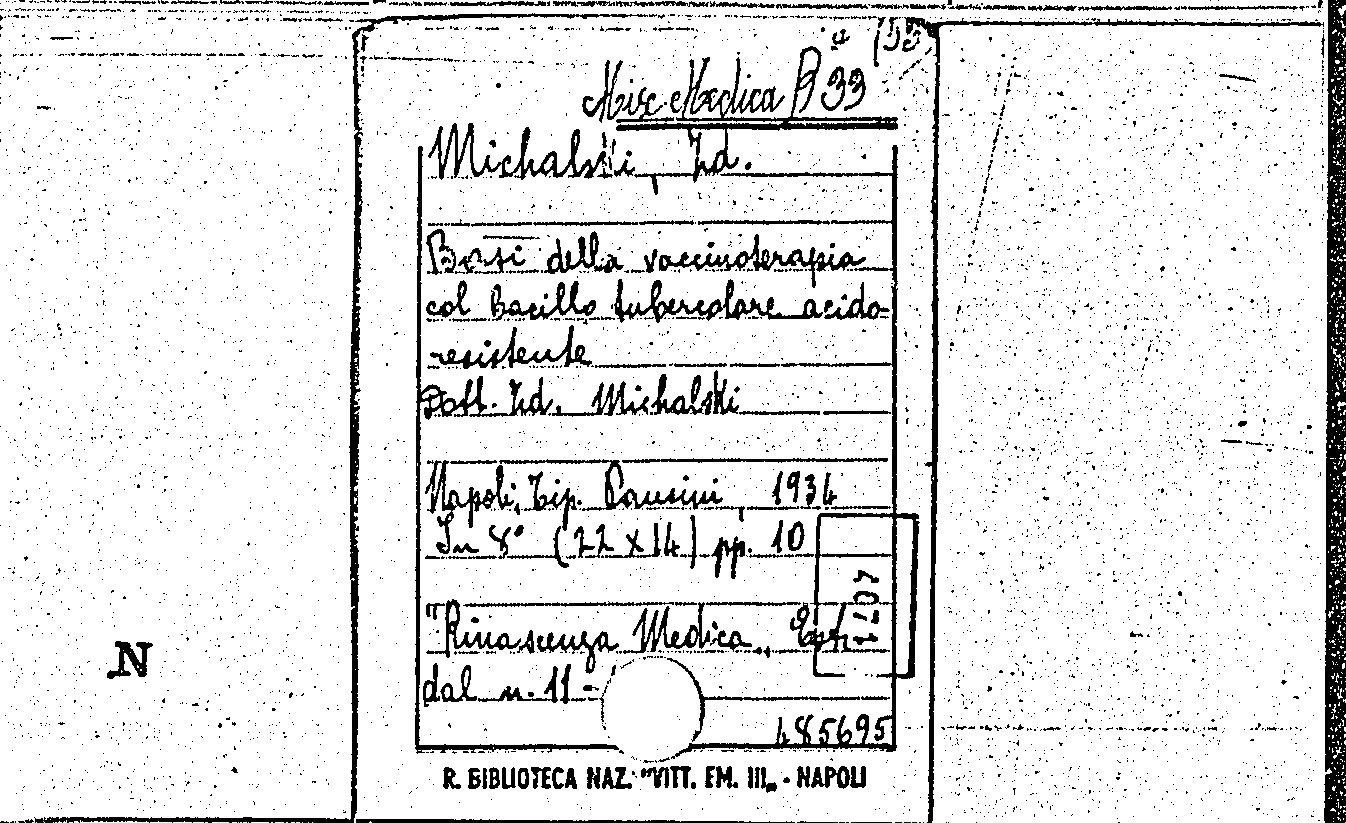 Misc. Medica B 33
Michalski, Zd.
Basi della vaccinoterapia
col Bacillo tubercolare acido-
resistente
Dott. Zd. Michalski
Napoli, Tip. Pausini, 1934
In 8° (22 x 14) pp. 10
"Rinascenza Medica„ Estr.
dal n. 11 -
4071
485695
R. BIBLIOTECA NAZ. "VITT. EM. III„ - NAPOLI
N